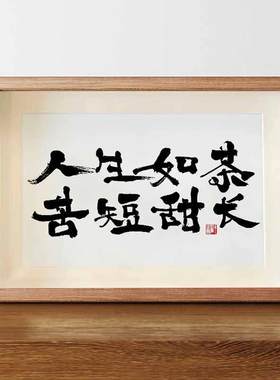 人生如茶
苦短甜长